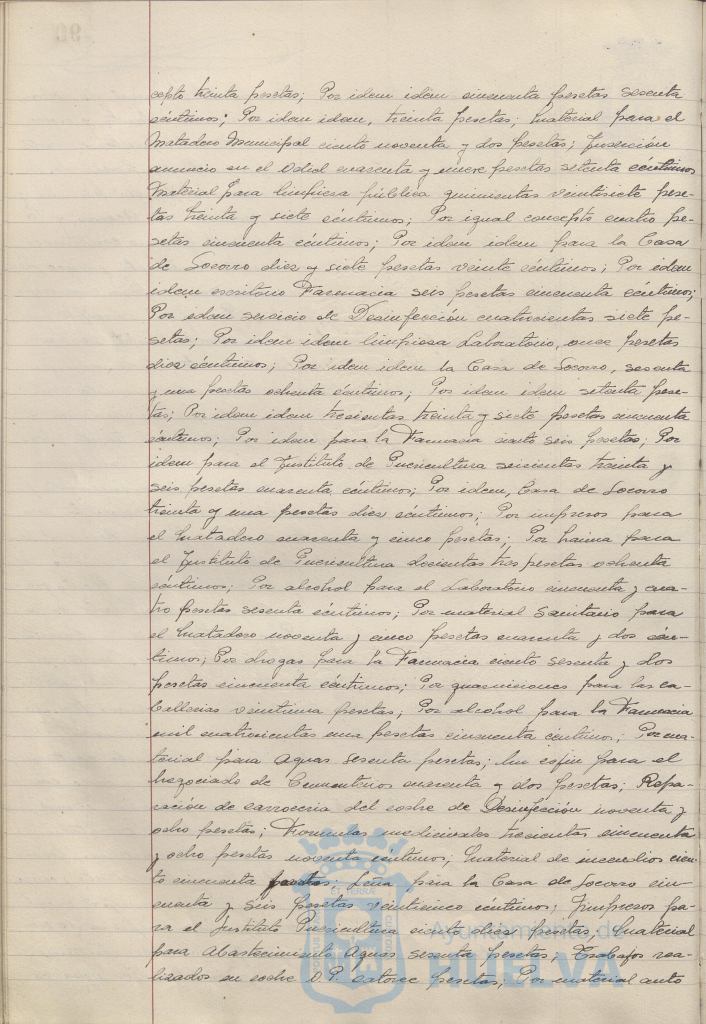 cepto treinta pesetas; Por idem idem cincuenta pesetas sesenta
céntimos; Por idem idem, treinta pesetas; Material para el
Matadero Municipal ciento noventa y dos pesetas; Inserción
anuncio en el Odiel cuarenta y nueve pesetas setenta céntimos
Material para limpiesa pública quinientas veintisiete pese-
tas treinta y siete céntimos; Por igual concepto cuatro pe-
setas cincuenta céntimos; Por idem idem para la Casa
de Socorro diez y siete pesetas veinte céntimos; Por idem
idem escritorio Farmacia seis pesetas cincuenta céntimos;
Por idem servicio de Desinfección cuatrocientas siete pe-
setas; Por idem idem limpiesa Laboratorio, once pesetas
diez céntimos; Por idem idem la Casa de Socorro, sesenta
y una pesetas ochenta céntimos; Por idem idem setenta pese-
tas; Por idem idem trescientas treinta y siete pesetas cincuenta
céntimos; Por idem para la Farmacia ciento seis pesetas; Por
idem para el Instituto de Puericultura seiscientas treinta y
seis pesetas cuarenta céntimos; Por idem, Casa de Socorro
treinta y una pesetas diez céntimos; Por impresos para
el Matadero cuarenta y cinco pesetas; Por harina para
el Instituto de Puericultura doscientas tres pesetas ochenta
céntimos; Por alcohol para el Laboratorio cincuenta y cua-
tro pesetas sesenta céntimos; Por material Sanitario para
el Matadero noventa y cinco pesetas cuarenta y dos cén-
timos; Por drogas para la Farmacia ciento sesenta y dos
pesetas cincuenta céntimos; Por guarniciones para las ca-
ballerias veintiuna pesetas; Por alcohol para la Farmacia
mil cuatrocientas una pesetas cincuenta centimos; Por ma-
terial para aguas sesenta pesetas; Un cojin para el
Negociado de Cementerios cuarenta y dos pesetas; Repa-
ración de carroceria del coche de Desinfección noventa y
ocho pesetas; Formulas medicinales trescientas cincuenta
y ocho pesetas noventa céntimos; Material de incendios cien-
to cincuenta pesetas; Leña para la Casa de Socorro cin-
cuenta y seis pesetas veinticinco céntimos; Impresos pa-
ra el Instituto Puericultura ciento diez pesetas; Material
para Abastecimiento Aguas sesenta pesetas; Trabajos rea-
lizados en coche O.P. catorce pesetas; Por material auto
Ayuntamiento de
HUELVA